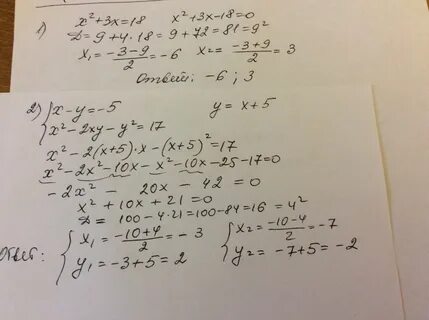 1) x² + 3x = 18 x² + 3x - 18 = 0
D = 9 + 4·18 = 9 + 72 = 81 = 9²
x₁ = (-3-9)/2 = -6 x₂ = (-3+9)/2 = 3
Ответ: -6 ; 3
2) { x - y = -5 y = x + 5
x² - 2xy - y² = 17
x² - 2(x+5)·x - (x+5)² = 17
x² - 2x² - 10x - x² - 10x - 25 - 17 = 0
-2x² - 20x - 42 = 0
x² + 10x + 21 = 0
D = 100 - 4·21 = 100 - 84 = 16 = 4²
Ответ: { x₁ = (-10+4)/2 = -3 { x₂ = (-10-4)/2 = -7
y₁ = -3 + 5 = 2 y₂ = -7 + 5 = -2